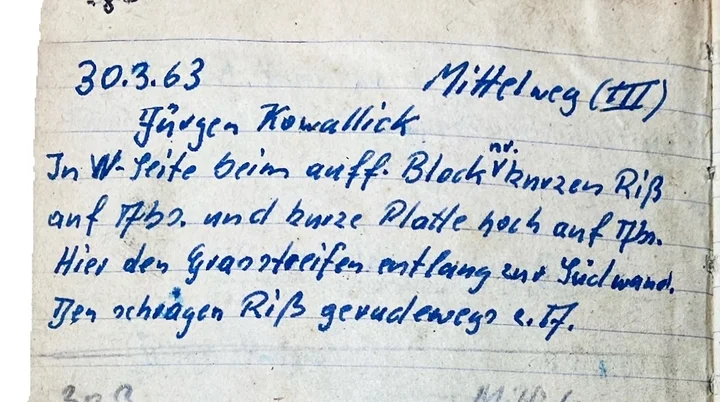 30.3.63 Mittelweg (III)
Jürgen Kowallick
In W-Seite beim auff. Block nr. kurzen Riß
auf Abs. und kurze Platte hoch auf Abs.
Hier den Grasstreifen entlang zur Südwand.
Den schrägen Riß geradewegs z. G.